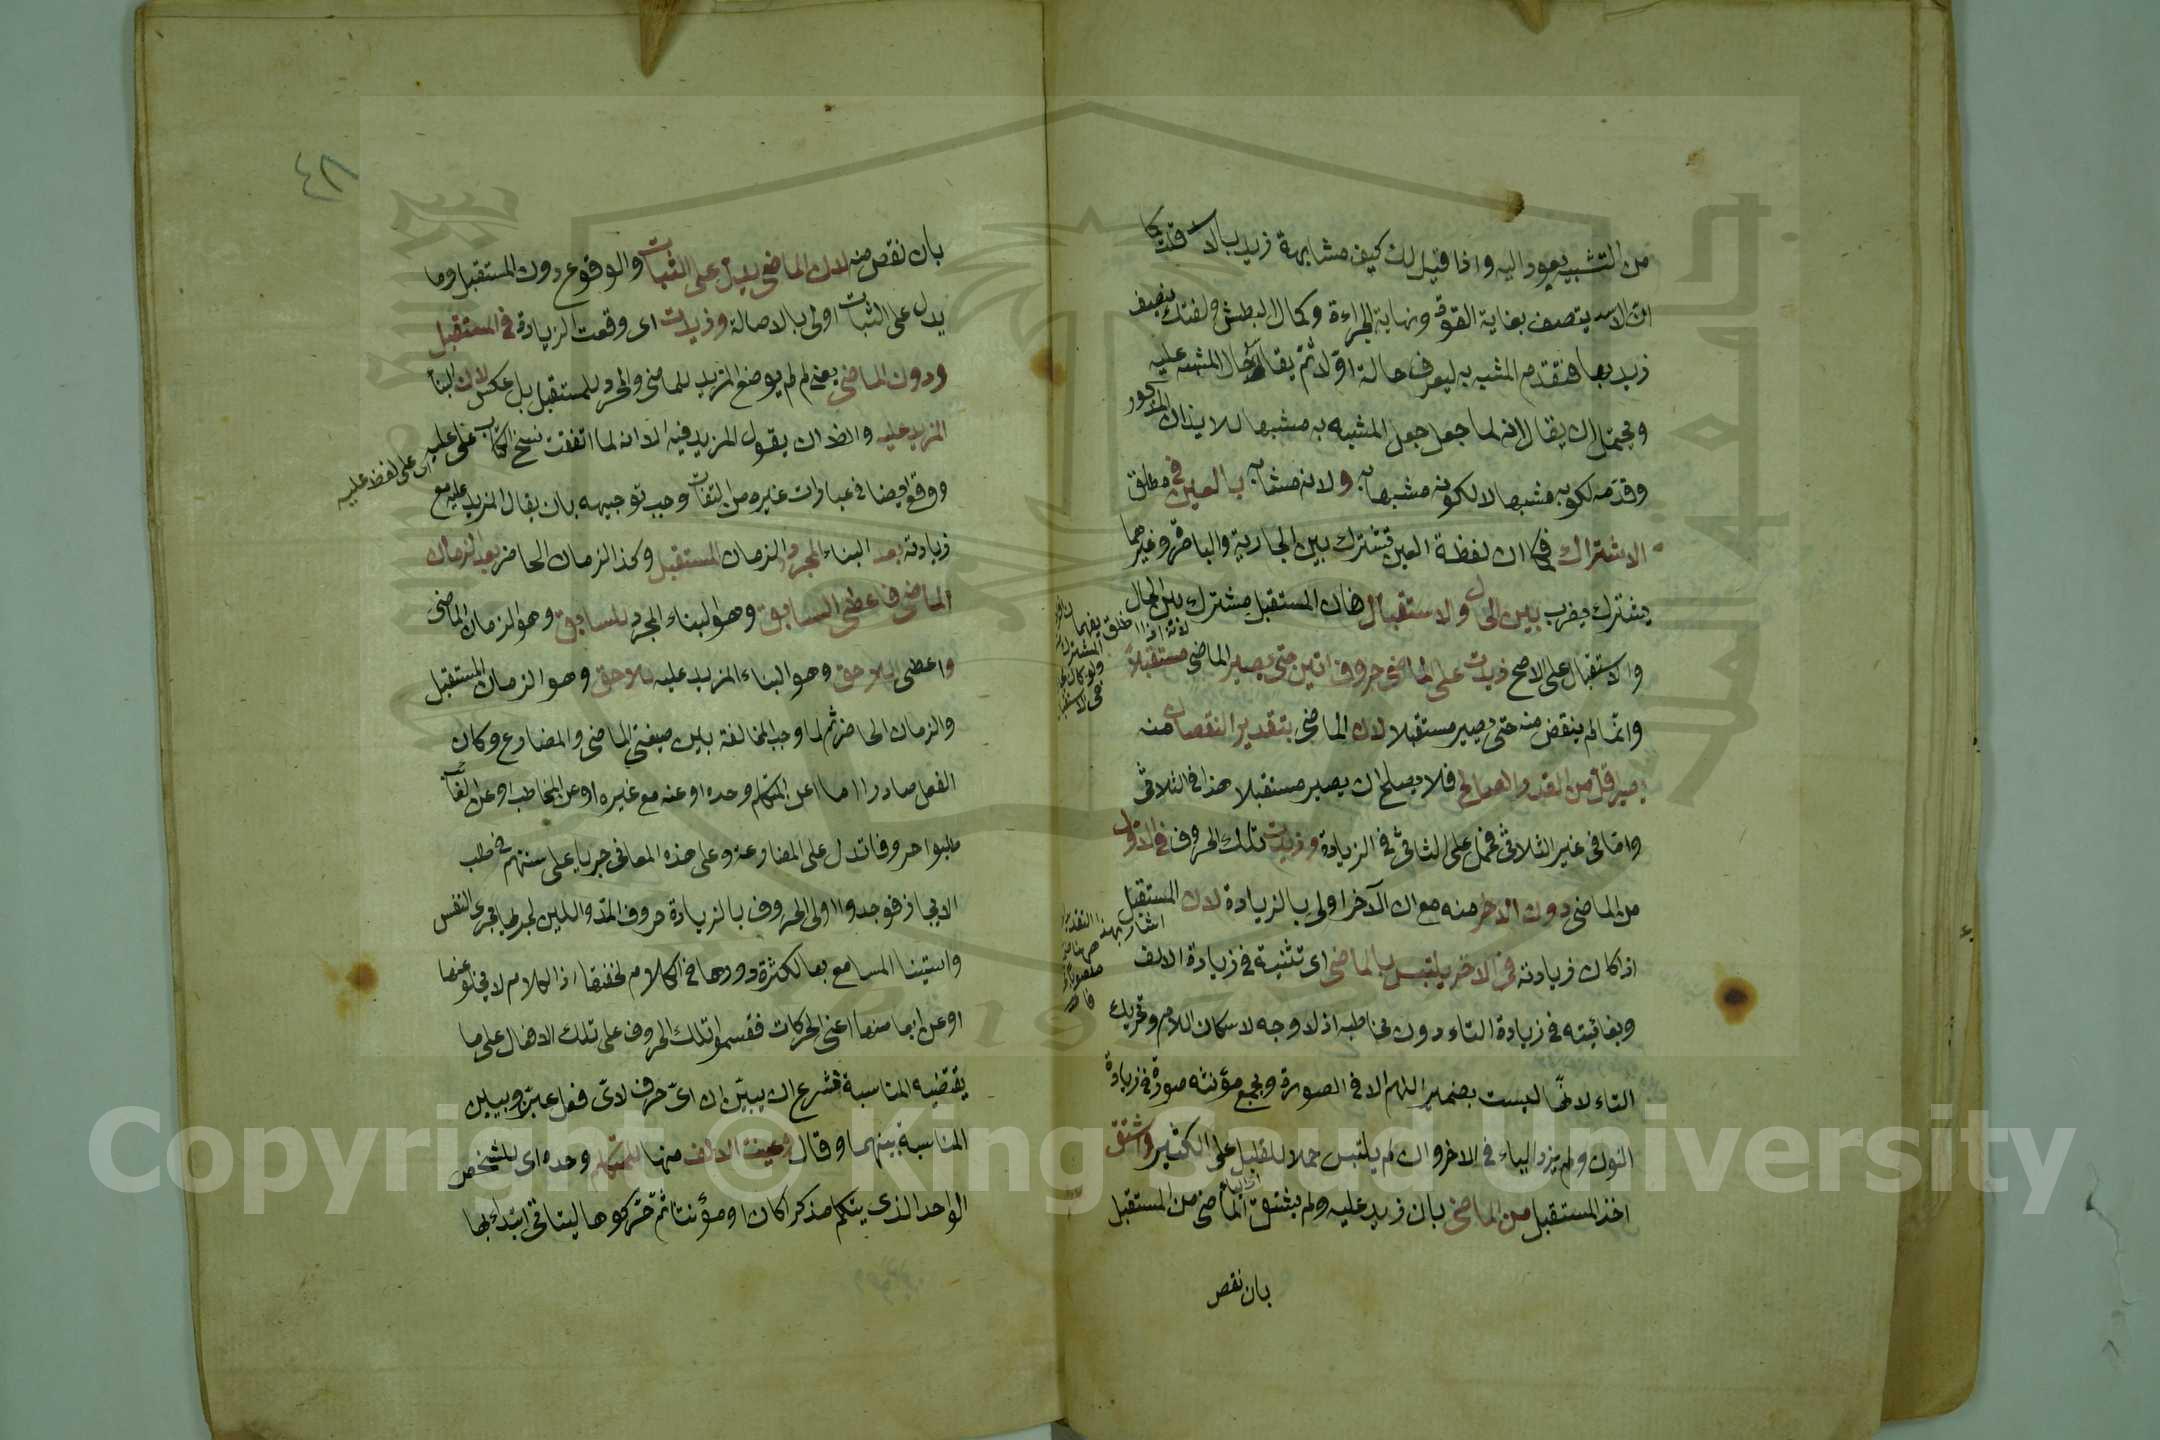 من التشبيه يعود اليه واذا قيل لك كيف مشابهة زيد بالاسد قلت كما
ان الاسد يتصف بغاية القوة ونهاية الجراءة وكمال البطش ولفتك يتصف
زيد بها فتقدم المشبه به ليعرف حاله اولا ثم يقال حال المشبه عليه
ويحتمل ان يقال انه لما جعل جعل المشبه به مشبها للايذان المذكور
وقدمه لكونه مشبها لا لكونه مشبها به ولانه مشابه بالعين في مطلق
الاشتراك فكما ان لفظة العين تشترك بين الجارية والباصرة وغيرهما
يشترك يضرب بين الحال والاستقبال فان المستقبل مشترك بين الحال
والاستقبال على الاصح زيدت على الماضي حروف اتين حتى يصير الماضي مستقبلا
وانما لم ينقص منه حتى يصير مستقبلا لان الماضي بتقدير النقصان منه
يصير اقل من القدر الصالح فلا يصلح ان يصير مستقبلا هذا في الثلاثي
واما في غير الثلاثي فحمل على الثلاثي في الزيادة وزيدت تلك الحروف في الاول
من الماضي دون الاخر منه مع ان الآخر اولى بالزيادة لان المستقبل
اذا كان زيادته في الاخر يلتبس بالماضي اى تثنية في زيادة الالف
وبغائبته في زيادة التاء دون مخاطبه اذ لا وجه لاسكان اللام وتحريك
التاء لانها ليست بضمير اللهم الا في الصورة وبجمع مؤنثه صورة في زيادة
النون ولم يزد الياء في الاخر وان لم يلتبس حملا للقليل على الكثير واشتق
اخذ المستقبل من الماضي بان زيد عليه ولم يشتق الماضي من المستقبل
بان نقص
٤٨
بان نقص منه لان الماضي يدل على الثبات والوقوع دون المستقبل وما
يدل على الثبات اولى بالاصالة وزيدت اى وقعت الزيادة في المستقبل
ودون الماضي يعنى لم لم يوضع المزيد للماضي والمجرد للمستقبل بل عكس لان البناء
المزيد عليه والظ ان يقول المزيد فيه الا انه لما اتفقت نسخ الكتاب على عليه
اى على لفظ عليه
ووقع ايضا في عبارات غيره من الثقات وجب توجيهه بان يقال المزيد عليه مع
زيادته بعد البناء المجرد والزمان المستقبل وكذا الزمان الحاضر بعد الزمان
الماضي فاعطى السابق وهو البناء المجرد للسابق وهو الزمان الماضي
واعطى اللاحق وهو البناء المزيد عليه للاحق وهو الزمان المستقبل
والزمان الحاضر ثم لما وجب المخالفة بين صيغتي الماضي والمضارع وكان
الفعل صادرا اما عن المتكلم وحده او عنه مع غيره او عن المخاطب او عن الغائب
طلبوا حروفا تدل على المضارعة وعلى هذه المعاني جريا على سننهم في طلب
الايجاز فوجدوا اولى الحروف بالزيادة حروف المد واللين لجريها مجرى النفس
واستيناس المسامع بها لكثرة دورها في الكلام لخفتها اذ الكلام لا يخلو عنها
او عن ابعاضها اعنى الحركات فقسموا تلك الحروف على تلك الافعال على ما
يقتضيه المناسبة فشرع ان يبين ان اى حرف لاى فعل عين ويبين
المناسبة بينهما وقال وعينت الالف منها للمتكلم وحده اى للشخص
الواحد الذى يتكلم مذكرا كان او مؤنثا ثم حركوها ليتأتى ابتداء بها
Copyright © King Saud University